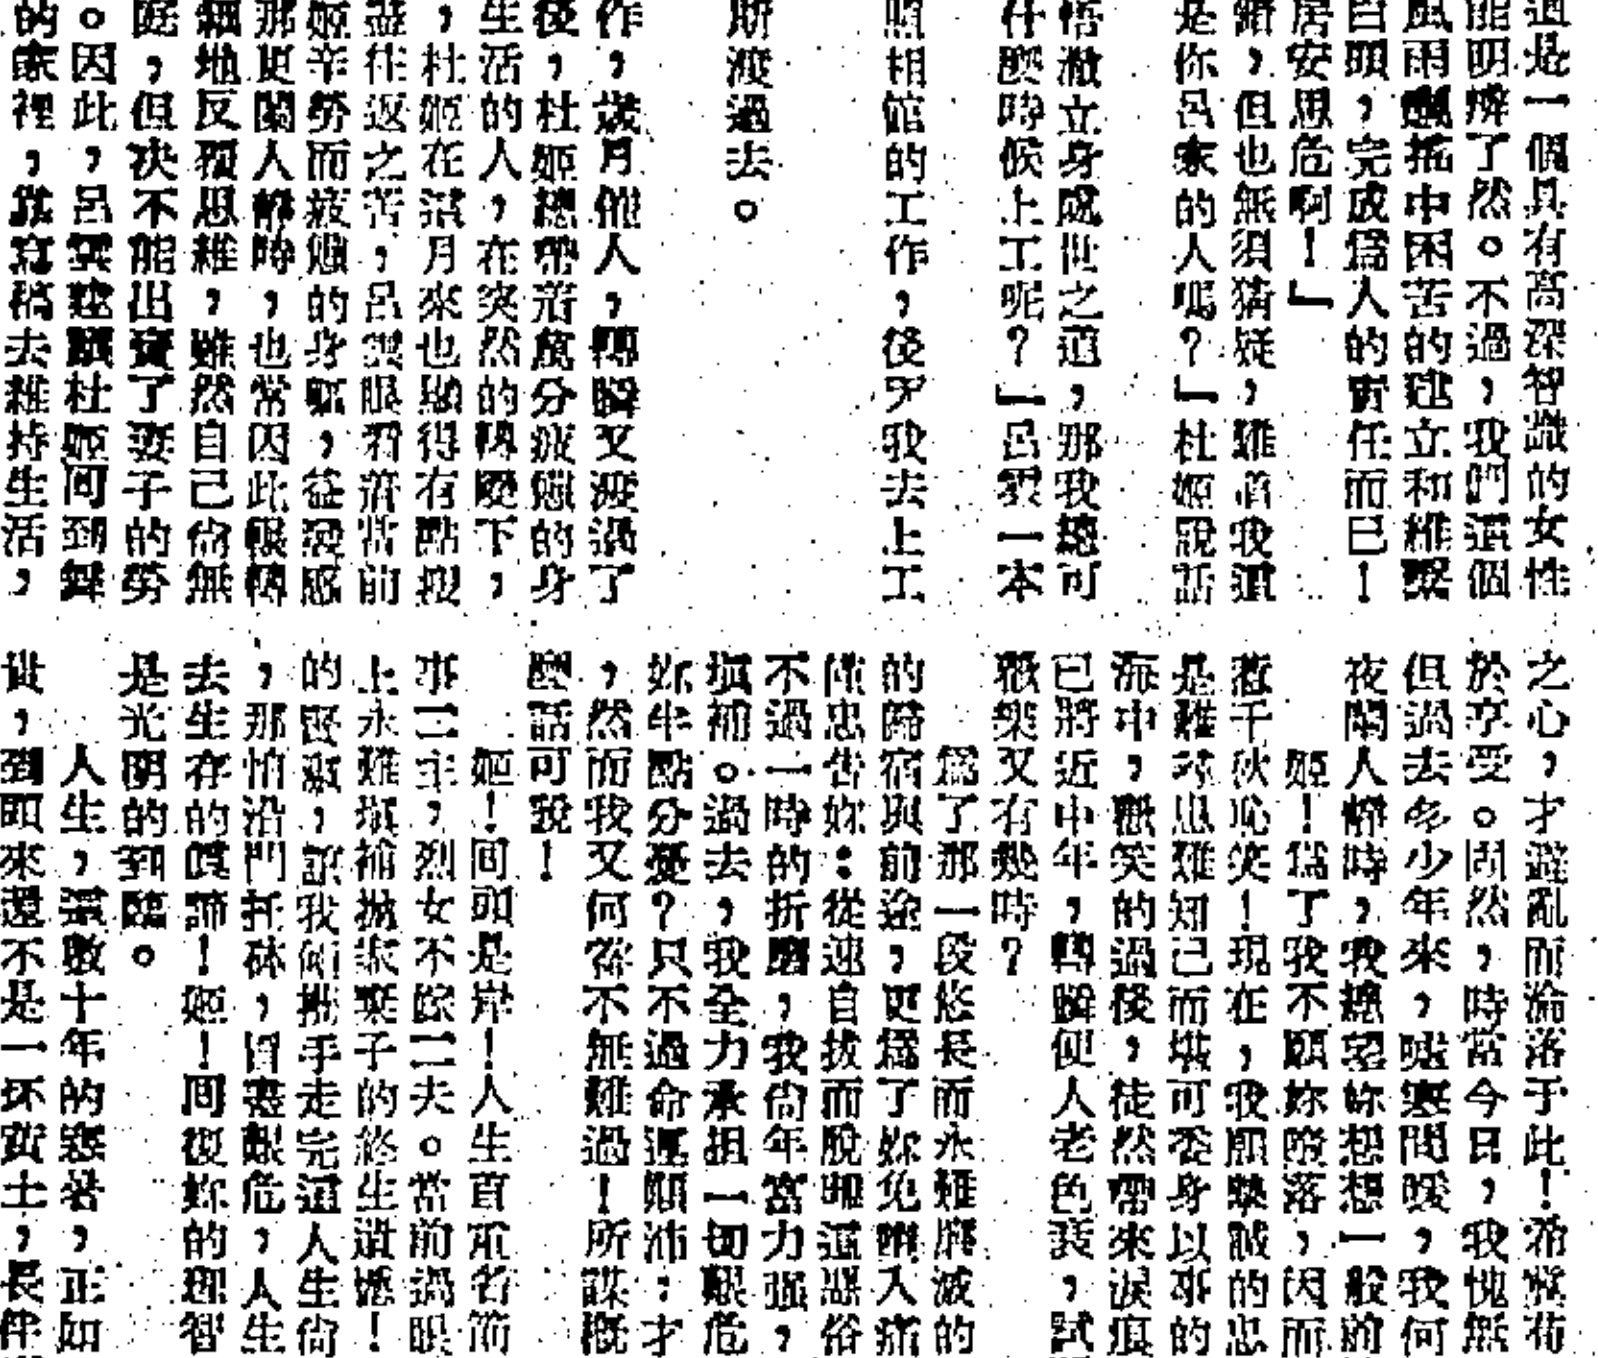 這是一個具有高深智識的女性
能明辨了然。不過，我們這個
風雨飄搖中困苦的建立和維繫
白頭，完成爲人的責任而已！
居安思危啊！」
錯，但也無須猜疑，難道我這
是你呂家的人嗎？」杜姬說話
悟澈立身處世之道，那我總可
什麼時候上工呢？」呂雲一本
照相館的工作，後天我去上工
斯渡過去。
作，歲月催人，轉瞬又渡過了
後，杜姬總帶着萬分疲憊的身
生活的人，在突然的轉變下，
，杜姬在這月來也顯得有點瘦
盡往返之苦，呂雲眼看着當前
姬辛勞而疲憊的身軀，益發感
那更闌人靜時，也常因此輾轉
細地反覆思維，雖然自己尙無
庭，但决不能出賣了妻子的勞
。因此，呂雲建議杜姬囘到舞
的家裡，靠寫稿去維持生活，
之心，才混亂而淪落于此！希
於享受。固然，時當今日，我愧無
但過去多少年來，噓寒問暖，我何
夜闌人靜時，我總望妳想想一般前
姬！爲了我不願妳墮落，因而
惹千秋恥笑！現在，我願摯誠的忠
是難尋思難知己而堪可委身以事的
海中，歡笑的過後，徒然帶來淚痕
已將近中年，轉瞬便人老色衰，試
歡樂又有幾時？
爲了那一段悠長而永難磨滅的
的歸宿與前途，更爲了妳免陷入痛
僅忠告妳：從速自拔而脫離這惡俗
不過一時的折磨，我尙年富力强，
塡補。過去，我全力承担一切艱危
妳半點分憂？只不過命運顚沛；才
，然而我又何嘗不無難過！所謀槪
麼話可說！
姬！囘頭是岸！人生首重名節
事二主，烈女不嫁二夫。當前過眼
上永難塡補拋家棄子的終生遺憾！
的喪淑，讓我倆携手走完這人生尙
，那怕沿門托砵，冒盡艱危，人生
去生存的眞諦！姬！囘復妳的理智
是光明的到臨。
人生，這數十年的寒暑，正如
世，到頭來還不是一坏黃土，長伴